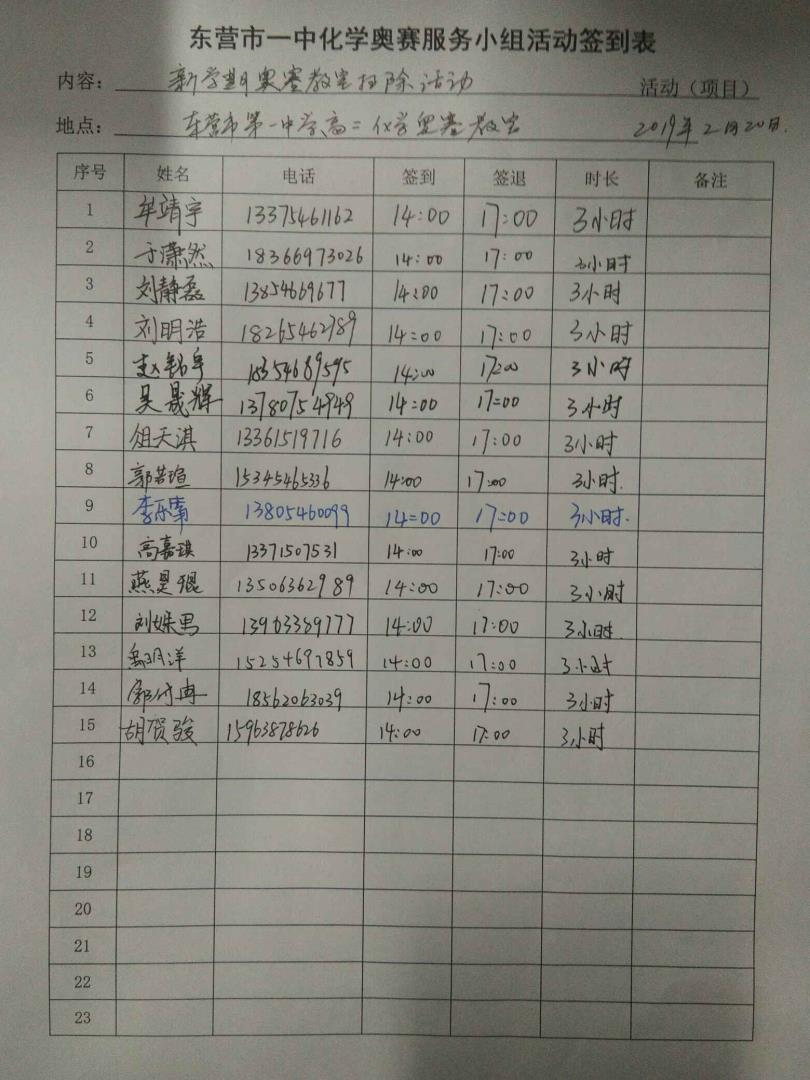 东营市一中化学奥赛服务小组活动签到表
内容：新学期奥赛教室扫除活动 活动（项目）
地点：东营市第一中学高二化学奥赛教室 2019年2月20日.
序号 姓名 电话 签到 签退 时长 备注
1 牟靖宇 13375461162 14:00 17:00 3小时
2 于潇然 18366973026 14:00 17:00 3小时
3 刘静磊 13854669677 14:00 17:00 3小时
4 刘明浩 18265462789 14:00 17:00 3小时
5 14:00 17:00 3小时
6 吴晟辉 13780754949 14:00 17:00 3小时
7 俎天淇 13361519716 14:00 17:00 3小时
8 郭若瑄 15345465336 14:00 17:00 3小时.
9 13805460099 14:00 17:00 3小时.
10 高嘉琪 13371507531 14:00 17:00 3小时
11 燕昊琨 13506362989 14:00 17:00 3小时
12 13963389777 14:00 17:00 3小时
13 15254697859 14:00 17:00 3小时
14 18562063039 14:00 17:00 3小时
15 胡贺骏 15963878626 14:00 17:00 3小时
16
17
18
19
20
21
22
23